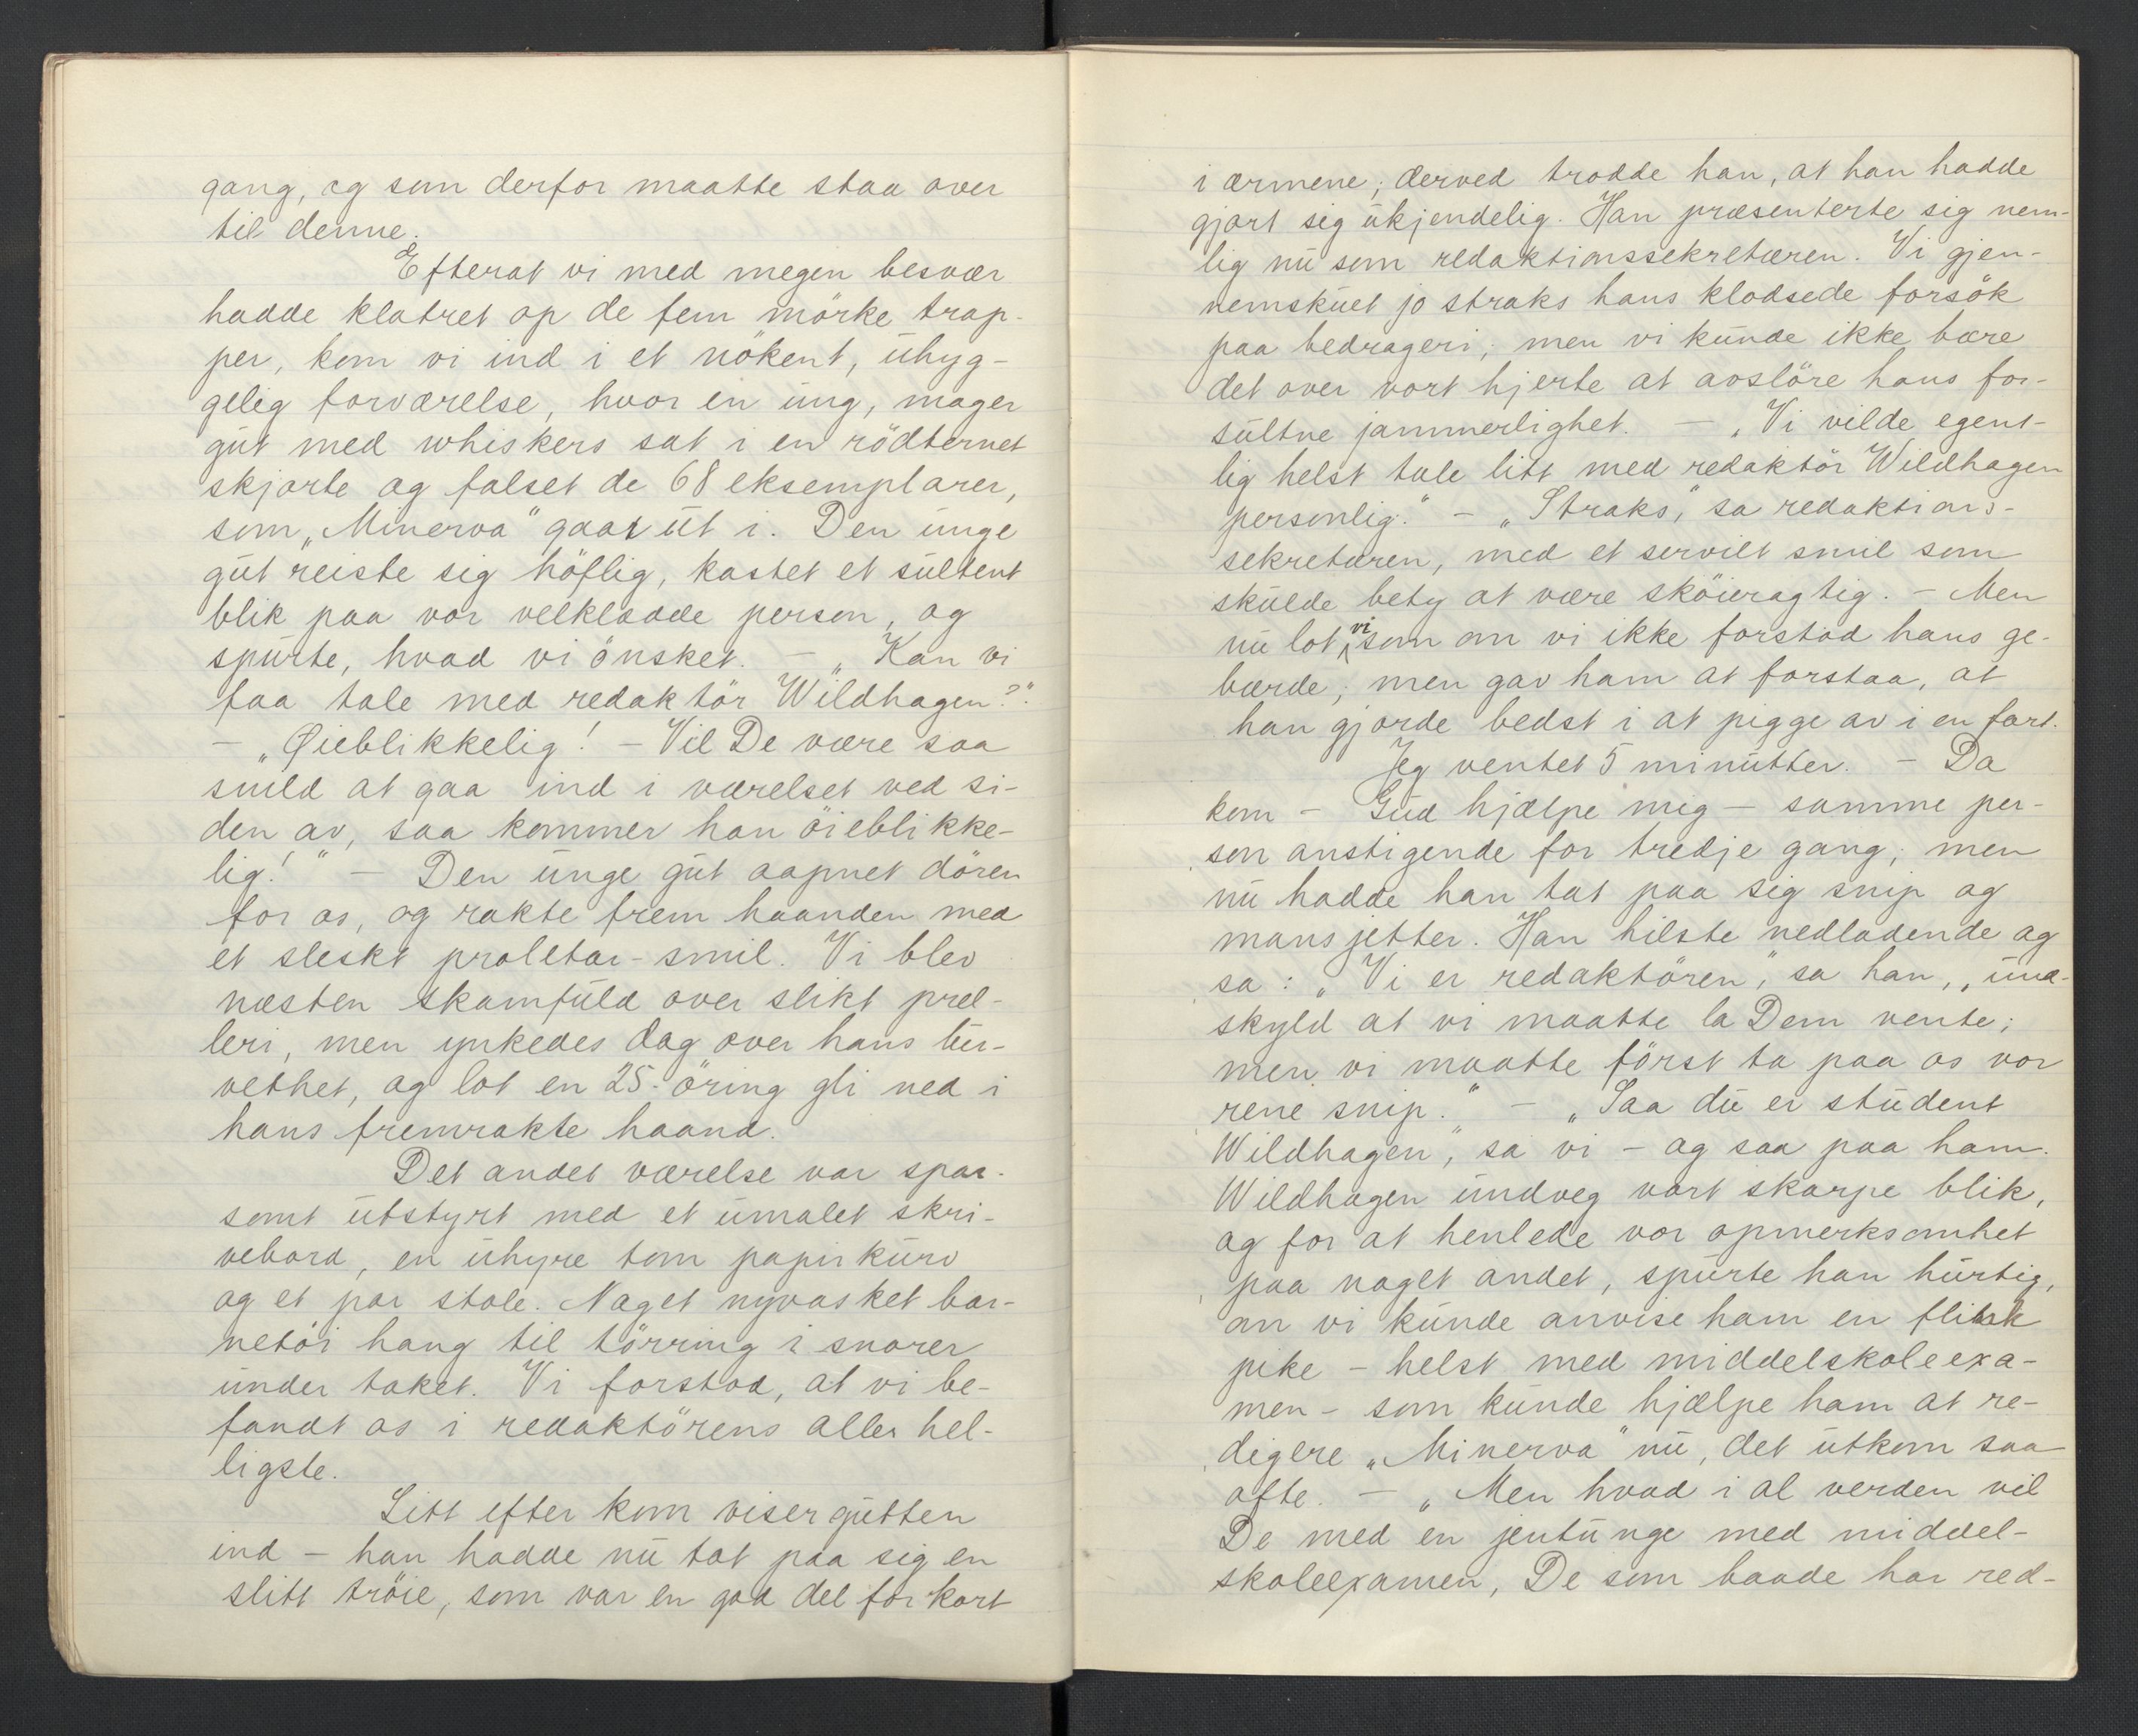 gang, og som derfor maatte staa over
til denne.
Efterat vi med megen besvær
hadde klatret op de fem mörke trap-
per, kom vi ind i et nökent, uhyg-
gelig forværelse, hvor en ung, mager
gut med whiskers sat i en rödternet
skjorte og falset de 68 eksemplarer,
som „Minerva" gaar ut i. Den unge
gut reiste sig höflig, kastet et sultent
blik paa vor velklædde person, og
spurte, hvad vi önsket. — „Kan vi
faa tale med redaktör Wildhagen?".
— „Øieblikkelig! — Vil De være saa
snild at gaa ind i værelset ved si-
den av, saa kommer han öieblikke-
lig!" — Den unge gut aapnet dören
for os, og rakte frem haanden med
et sleskt proletar-smil. Vi blev
næsten skamfuld over slikt prel-
leri, men ynkedes dog over hans tur-
vethet, og lot en 25-öring gli ned i
hans fremrakte haand.
Det andet værelse var spar-
somt utstyrt med et umalet skri-
vebord, en uhyre tom papirkurv
og et par stole. Noget nyvasket bar-
netöi hang til törring i snorer
under taket. Vi forstod, at vi be-
fandt os i redaktörens aller hel-
ligste.
Litt efter kom visergutten
ind — han hadde nu tat paa sig en
slitt tröie, som var en god del for kort
i ærmene; derved trodde han, at han hadde
gjort sig ukjendelig. Han præsenterte sig nem-
lig nu som redaktionssekretæren. Vi gjen-
nemskuet jo straks hans klodsede forsök
paa bedrageri; men vi kunde ikke bære
det over vort hjerte at avslöre hans for-
sultne jammerlighet. — „Vi vilde egent-
lig helst tale litt med redaktör Wildhagen
personlig." — „Straks," sa redaktions-
sekretæren, med et servilt smil som
skulde bety at være sköieragtig. — Men
nu lot vi som om vi ikke forstod hans ge-
bærde; men gav ham at forstaa, at
han gjorde bedst i at pigge av i en fart.
Jeg ventet 5 minutter. — Da
kom — Gud hjælpe mig — samme per-
son anstigende for tredje gang; men
nu hadde han tat paa sig snip og
mansjetter. Han hilste nedladende og
sa: „Vi er redaktören," sa han, „und-
skyld at vi maatte la Dem vente;
men vi maatte först ta paa os vor
rene snip." — „Saa du er student
Wildhagen", sa vi — og saa paa ham.
Wildhagen undveg vort skarpe blik,
og for at henlede vor opmerksomhet
paa noget andet, spurte han hurtig,
om vi kunde anvise ham en flink
pike — helst med middelskoleexa-
men — som kunde hjælpe ham at re-
digere „Minerva" nu, det utkom saa
ofte. — „Men hvad i al verden vil
De med en jentunge med middel-
skoleexamen, De som baade har red-